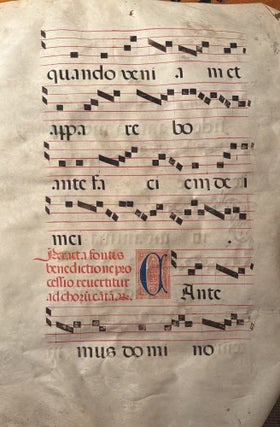 quando veni a m et
appa re bo
ante fa ci em de i
mei.
Peracta fontis
benedictione pro
cessio revertitur
ad chorū cātā
C Ante
mus do mi no